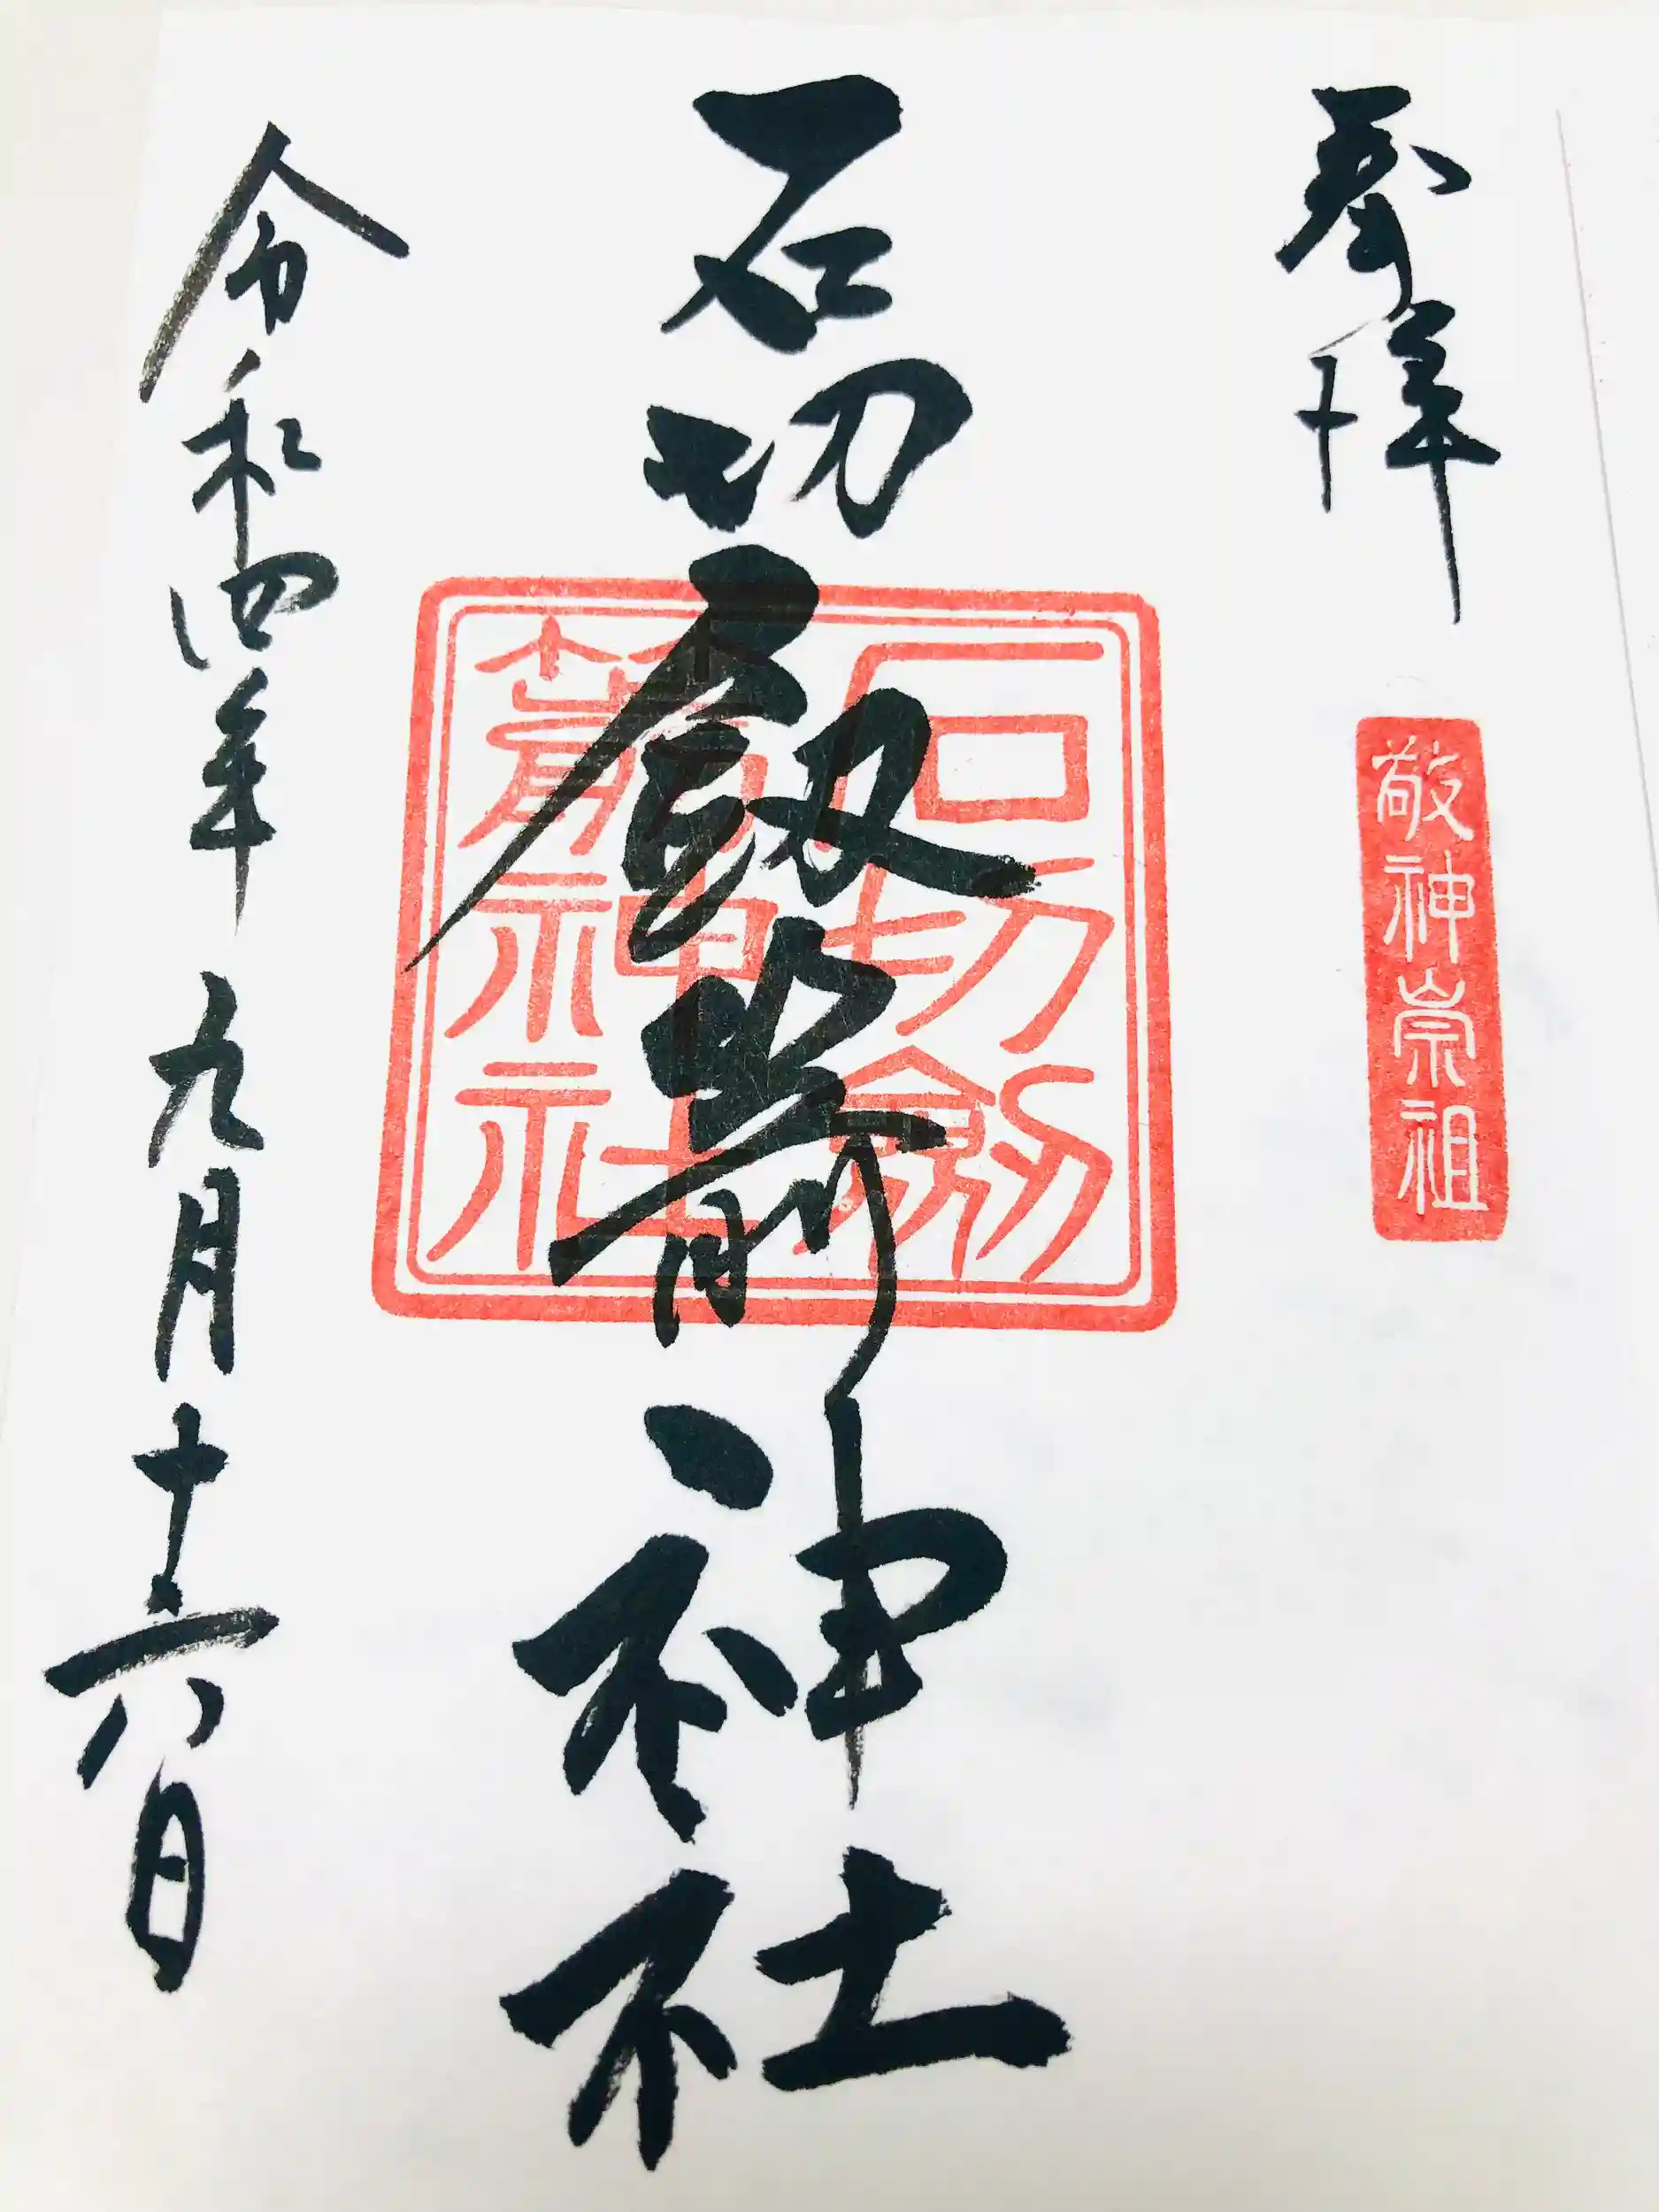 奉拝
敬神崇祖
石切劔箭神社
石切劔
箭神社
令和四年九月十六日